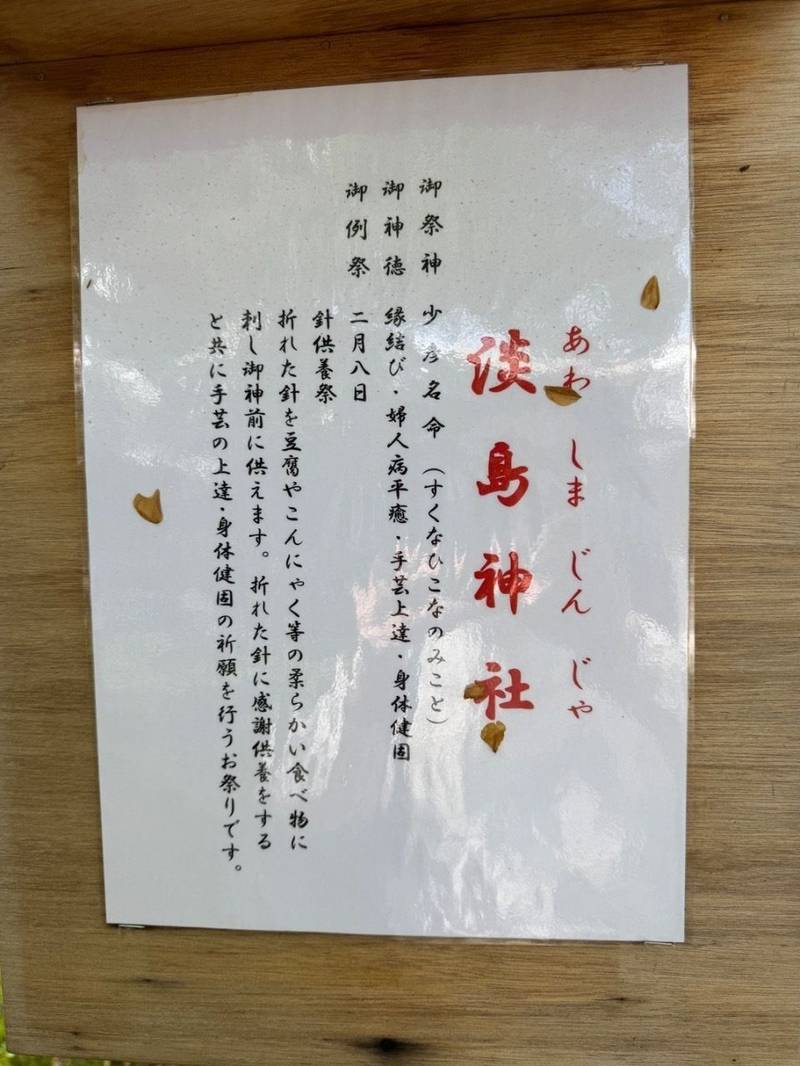 あわしまじんじゃ
淡島神社
御祭神 少彦名命（すくなひこなのみこと）
御神徳 縁結び・婦人病平癒・手芸上達・身体健固
御例祭 二月八日
針供養祭
折れた針を豆腐やこんにゃく等の柔らかい食べ物に
刺し御神前に供えます。折れた針に感謝供養をする
と共に手芸の上達・身体健固の祈願を行うお祭りです。